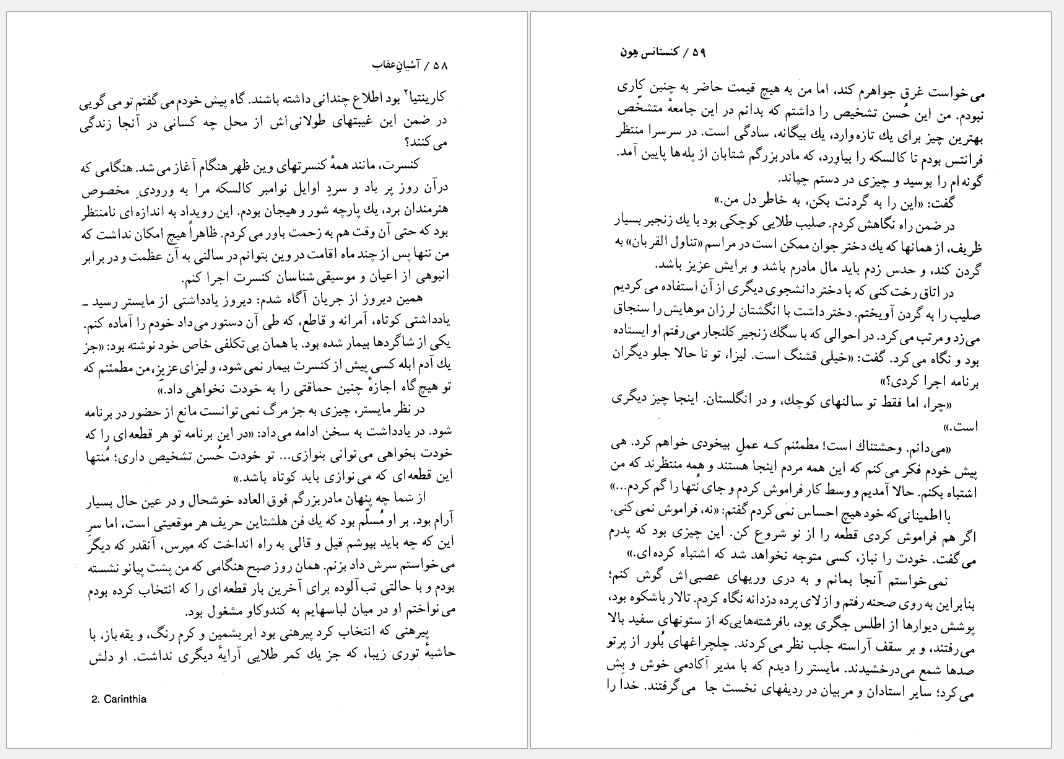 ۵۸ / آشیانِ عقاب
کارینتیا۲ بود اطلاع چندانی داشته باشند. گاه پیش خودم می‌گفتم تو می‌گویی
در ضمن این غیبتهای طولانی‌اش از محل چه کسانی در آنجا زندگی
می‌کنند؟
کنسرت، مانند همهٔ کنسرتهای وین ظهر هنگام آغاز می‌شد. هنگامی که
درآن روز پر باد و سردِ اوایل نوامبر کالسکه مرا به ورودیِ مخصوص
هنرمندان برد، یك پارچه شور و هیجان بودم. این رویداد به اندازه‌ای نامنتظر
بود که حتی آن وقت هم به زحمت باور می‌کردم. ظاهراً هیچ امکان نداشت که
من تنها پس از چند ماه اقامت در وین بتوانم در سالنی به آن عظمت و در برابر
انبوهی از اعیان و موسیقی‌شناسان کنسرت اجرا کنم.
همین دیروز از جریان آگاه شدم: دیروز یادداشتی از مایستر رسید ــ
یادداشتی کوتاه، آمرانه و قاطع، که طی آن دستور می‌داد خودم را آماده کنم.
یکی از شاگردها بیمار شده بود. با همان بی‌تکلفی خاص خود نوشته بود: «جز
یك آدم ابله کسی پیش از کنسرت بیمار نمی‌شود، و لیزای عزیز، من مطمئنم که
تو هیچ‌گاه اجازهٔ چنین حماقتی را به خودت نخواهی داد.»
در نظر مایستر، چیزی به جز مرگ نمی‌توانست مانع از حضور در برنامه
شود. در یادداشت به سخن ادامه می‌داد: «در این برنامه تو هر قطعه‌ای را که
خودت بخواهی می‌توانی بنوازی... تو خودت حُسن تشخیص داری؛ مُنتها
این قطعه‌ای که می‌نوازی باید کوتاه باشد.»
از شما چه پنهان مادربزرگم فوق‌العاده خوشحال و در عین حال بسیار
آرام بود. بر او مُسلّم بود که یك فن هلشتاین حریف هر موقعیتی است، اما سرِ
این که چه باید بپوشم قیل و قالی به راه انداخت که مپرس، آنقدر که دیگر
می‌خواستم سرش داد بزنم. همان روز صبح هنگامی که من پشت پیانو نشسته
بودم و با حالتی تب‌آلوده برای آخرین بار قطعه‌ای را که انتخاب کرده بودم
می‌نواختم او در میان لباسهایم به کندوکاو مشغول بود.
پیرهنی که انتخاب کرد پیرهنی بود ابریشمین و کرم رنگ، و یقه‌باز، با
حاشیهٔ توری زیبا، که جز یك کمر طلایی آرایهٔ دیگری نداشت. او دلش
2. Carinthia
۵۹ / کنستانس هِون
می‌خواست غرق جواهرم کند، اما من به هیچ قیمت حاضر به چنین کاری
نبودم. من این حُسن تشخیص را داشتم که بدانم در این جامعهٔ متشخّص
بهترین چیز برای یك تازه‌وارد، یك بیگانه، سادگی است. در سرسرا منتظر
فرانتس بودم تا کالسکه را بیاورد، که مادربزرگم شتابان از پله‌ها پایین آمد.
گونه‌ام را بوسید و چیزی در دستم چپاند.
گفت: «این را به گردنت بکن، به خاطر دل من.»
در ضمن راه نگاهش کردم. صلیب طلایی کوچکی بود با یك زنجیر بسیار
ظریف، از همانها که یك دختر جوان ممکن است در مراسم «تناول القربان» به
گردن کند، و حدس زدم باید مال مادرم باشد و برایش عزیز باشد.
در اتاق رخت‌کنی که با دختر دانشجوی دیگری از آن استفاده می‌کردیم
صلیب را به گردن آویختم. دختر داشت با انگشتان لرزان موهایش را سنجاق
می‌زد و مرتب می‌کرد. در احوالی که با سگك زنجیر کلنجار می‌رفتم او ایستاده
بود و نگاه می‌کرد. گفت: «خیلی قشنگ است. لیزا، تو تا حالا جلو دیگران
برنامه اجرا کردی؟»
«چرا، اما فقط تو سالنهای کوچك، و در انگلستان. اینجا چیز دیگری
است.»
«می‌دانم. وحشتناك است! مطمئنم کـه عملِ بیخودی خواهم کرد. هی
پیش خودم فکر می‌کنم که این همه مردم اینجا هستند و همه منتظرند که من
اشتباه بکنم. حالا آمدیم و وسط کار فراموش کردم و جای نُتها را گم کردم...»
با اطمینانی که خود هیچ احساس نمی‌کردم گفتم: «نه، فراموش نمی‌کنی.
اگر هم فراموش کردی قطعه را از نو شروع کن. این چیزی بود که پدرم
می‌گفت. خودت را نباز، کسی متوجه نخواهد شد که اشتباه کرده‌ای.»
نمی‌خواستم آنجا بمانم و به دری وریهای عصبی‌اش گوش کنم؛
بنابراین به روی صحنه رفتم و از لای پرده دزدانه نگاه کردم. تالار باشکوه بود،
پوشش دیوارها از اطلس جگری بود، با فرشته‌هایی‌که از ستونهای سفید بالا
می‌رفتند، و بر سقف آراسته جلب نظر می‌کردند. چلچراغهای بُلور از پرتو
صدها شمع می‌درخشیدند. مایستر را دیدم که با مدیر آکادمی خوش و بِش
می‌کرد؛ سایر استادان و مربیان در ردیفهای نخست جا می‌گرفتند. خدا را